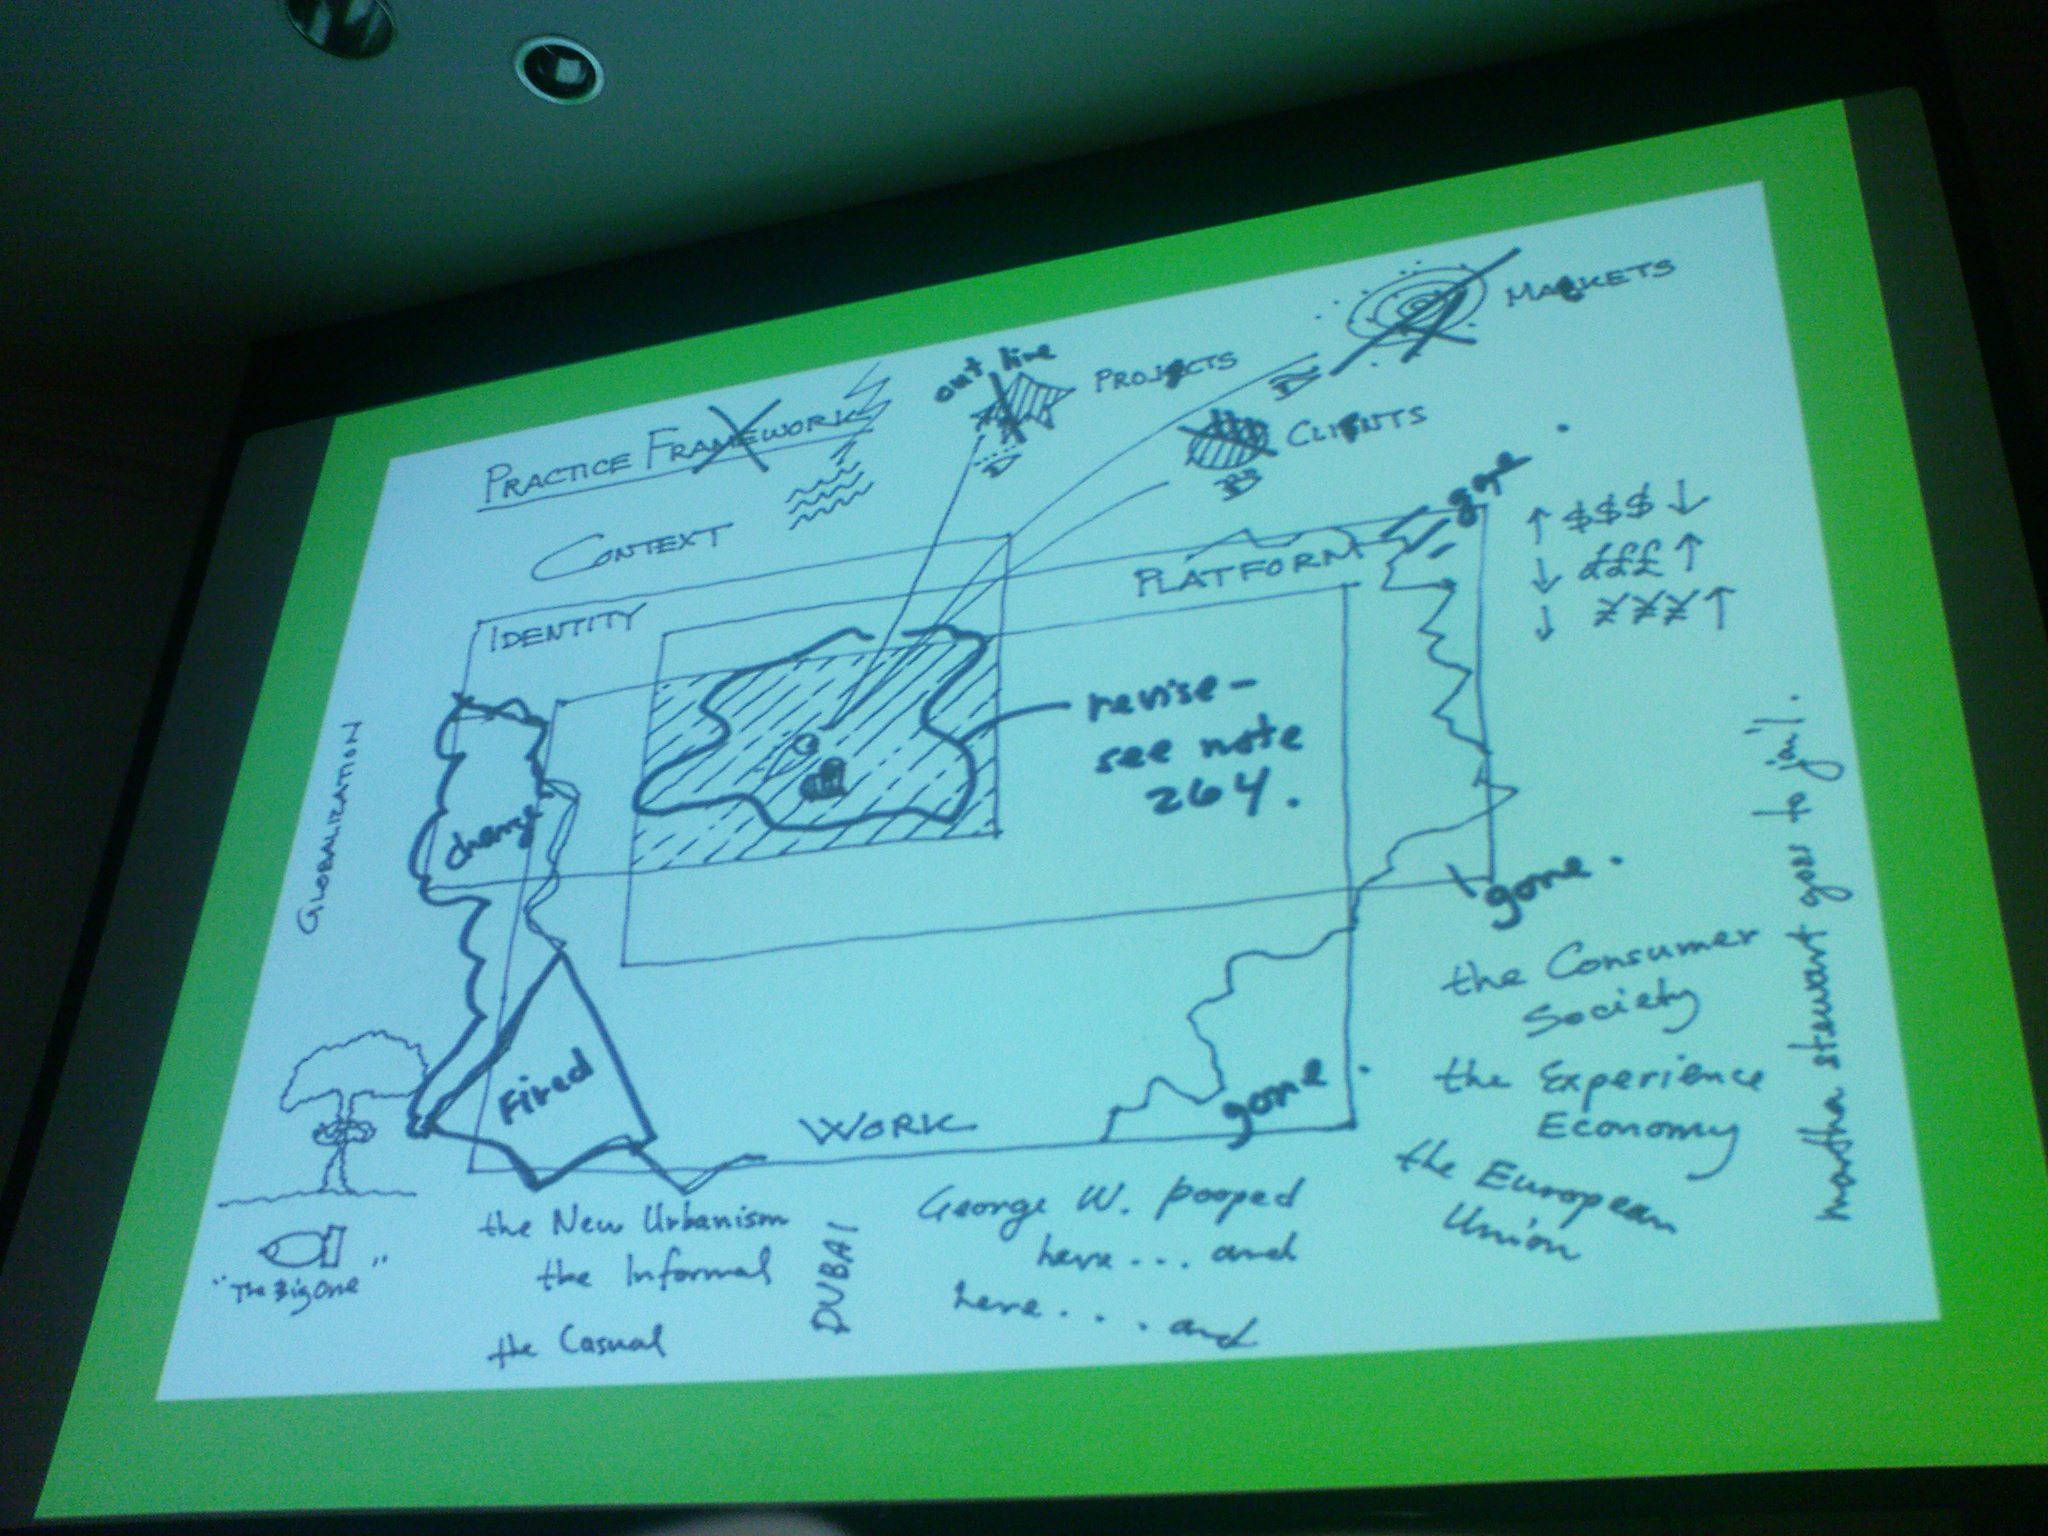 PRACTICE FRAMEWORK
out live
PROJECTS
MARKETS
CLIENTS
CONTEXT
IDENTITY
PLATFORM
gone.
↑ $$$ ↓
↓ £££ ↑
↓ ¥¥¥ ↑
GLOBALIZATION
change
revise –
see note
264.
gone.
Fired
WORK
gone.
the Consumer
Society
the Experience
Economy
the European
Union
martha stewart goes to jail.
"The Big One"
the New Urbanism
the Informal
the Casual
DUBAI
George W. pooped
here... and
here.... and